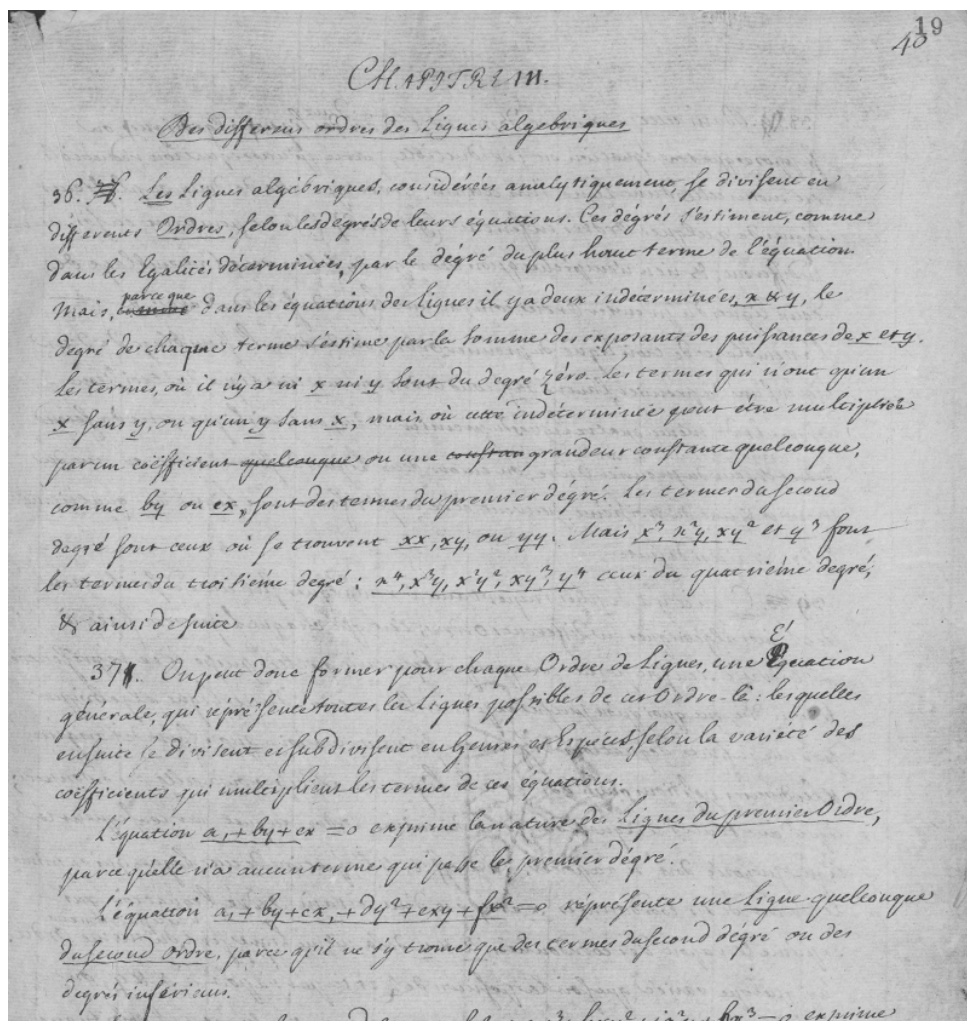 19
40
CHAPITRE III.
Des differens ordres des Lignes algebriques
36. Les Lignes algébriques, considérées analytiquement, se divisent en
différents Ordres, selon les dégrés de leurs équations. Ces dégrés s'estiment, comme
dans les Egalités déterminées, par le dégré du plus haut terme de l'équation
parce que
Mais, dans les équations des lignes il y a deux indéterminées, x & y, le
degré de chaque terme s'estime par la somme des exposants des puissances de x et y.
Les termes, où il n'y a ni x ni y sont du degré zéro. Les termes qui n'ont qu'un
x sans y, ou qu'un y sans x, mais où cette indéterminée peut être multipliée
par un coëfficient quelconque ou une constan grandeur constante quelconque,
comme by ou cx, sont des termes du premier dégré. Les termes du second
degré sont ceux où se trouvent xx, xy, ou yy. Mais x³, x²y, xy² et y³ font
les termes du troisième degré; x⁴, x³y, x²y², xy³, y⁴ ceux du quatrième degré,
& ainsi de suite
É
37. On peut donc former pour chaque Ordre de Lignes, une Equation
générale, qui réprésente toutes les Lignes possibles de cet Ordre-là: lesquelles
ensuite se divisent et subdivisent en Genres et Espèces selon la variété des
coëfficients qui multiplient les termes de ces équations.
L'équation a,+by+cx=0 exprime la nature des Lignes du premier Ordre,
parce qu'elle n'a aucun terme qui passe le premier dégré.
L'équation a,+by+cx,+dy²+exy+fx²=0 réprésente une Ligne quelconque
du second Ordre, parce qu'il ne s'y trouve que des termes du second dégré ou des
degrés inférieurs.
x³=0 exprime